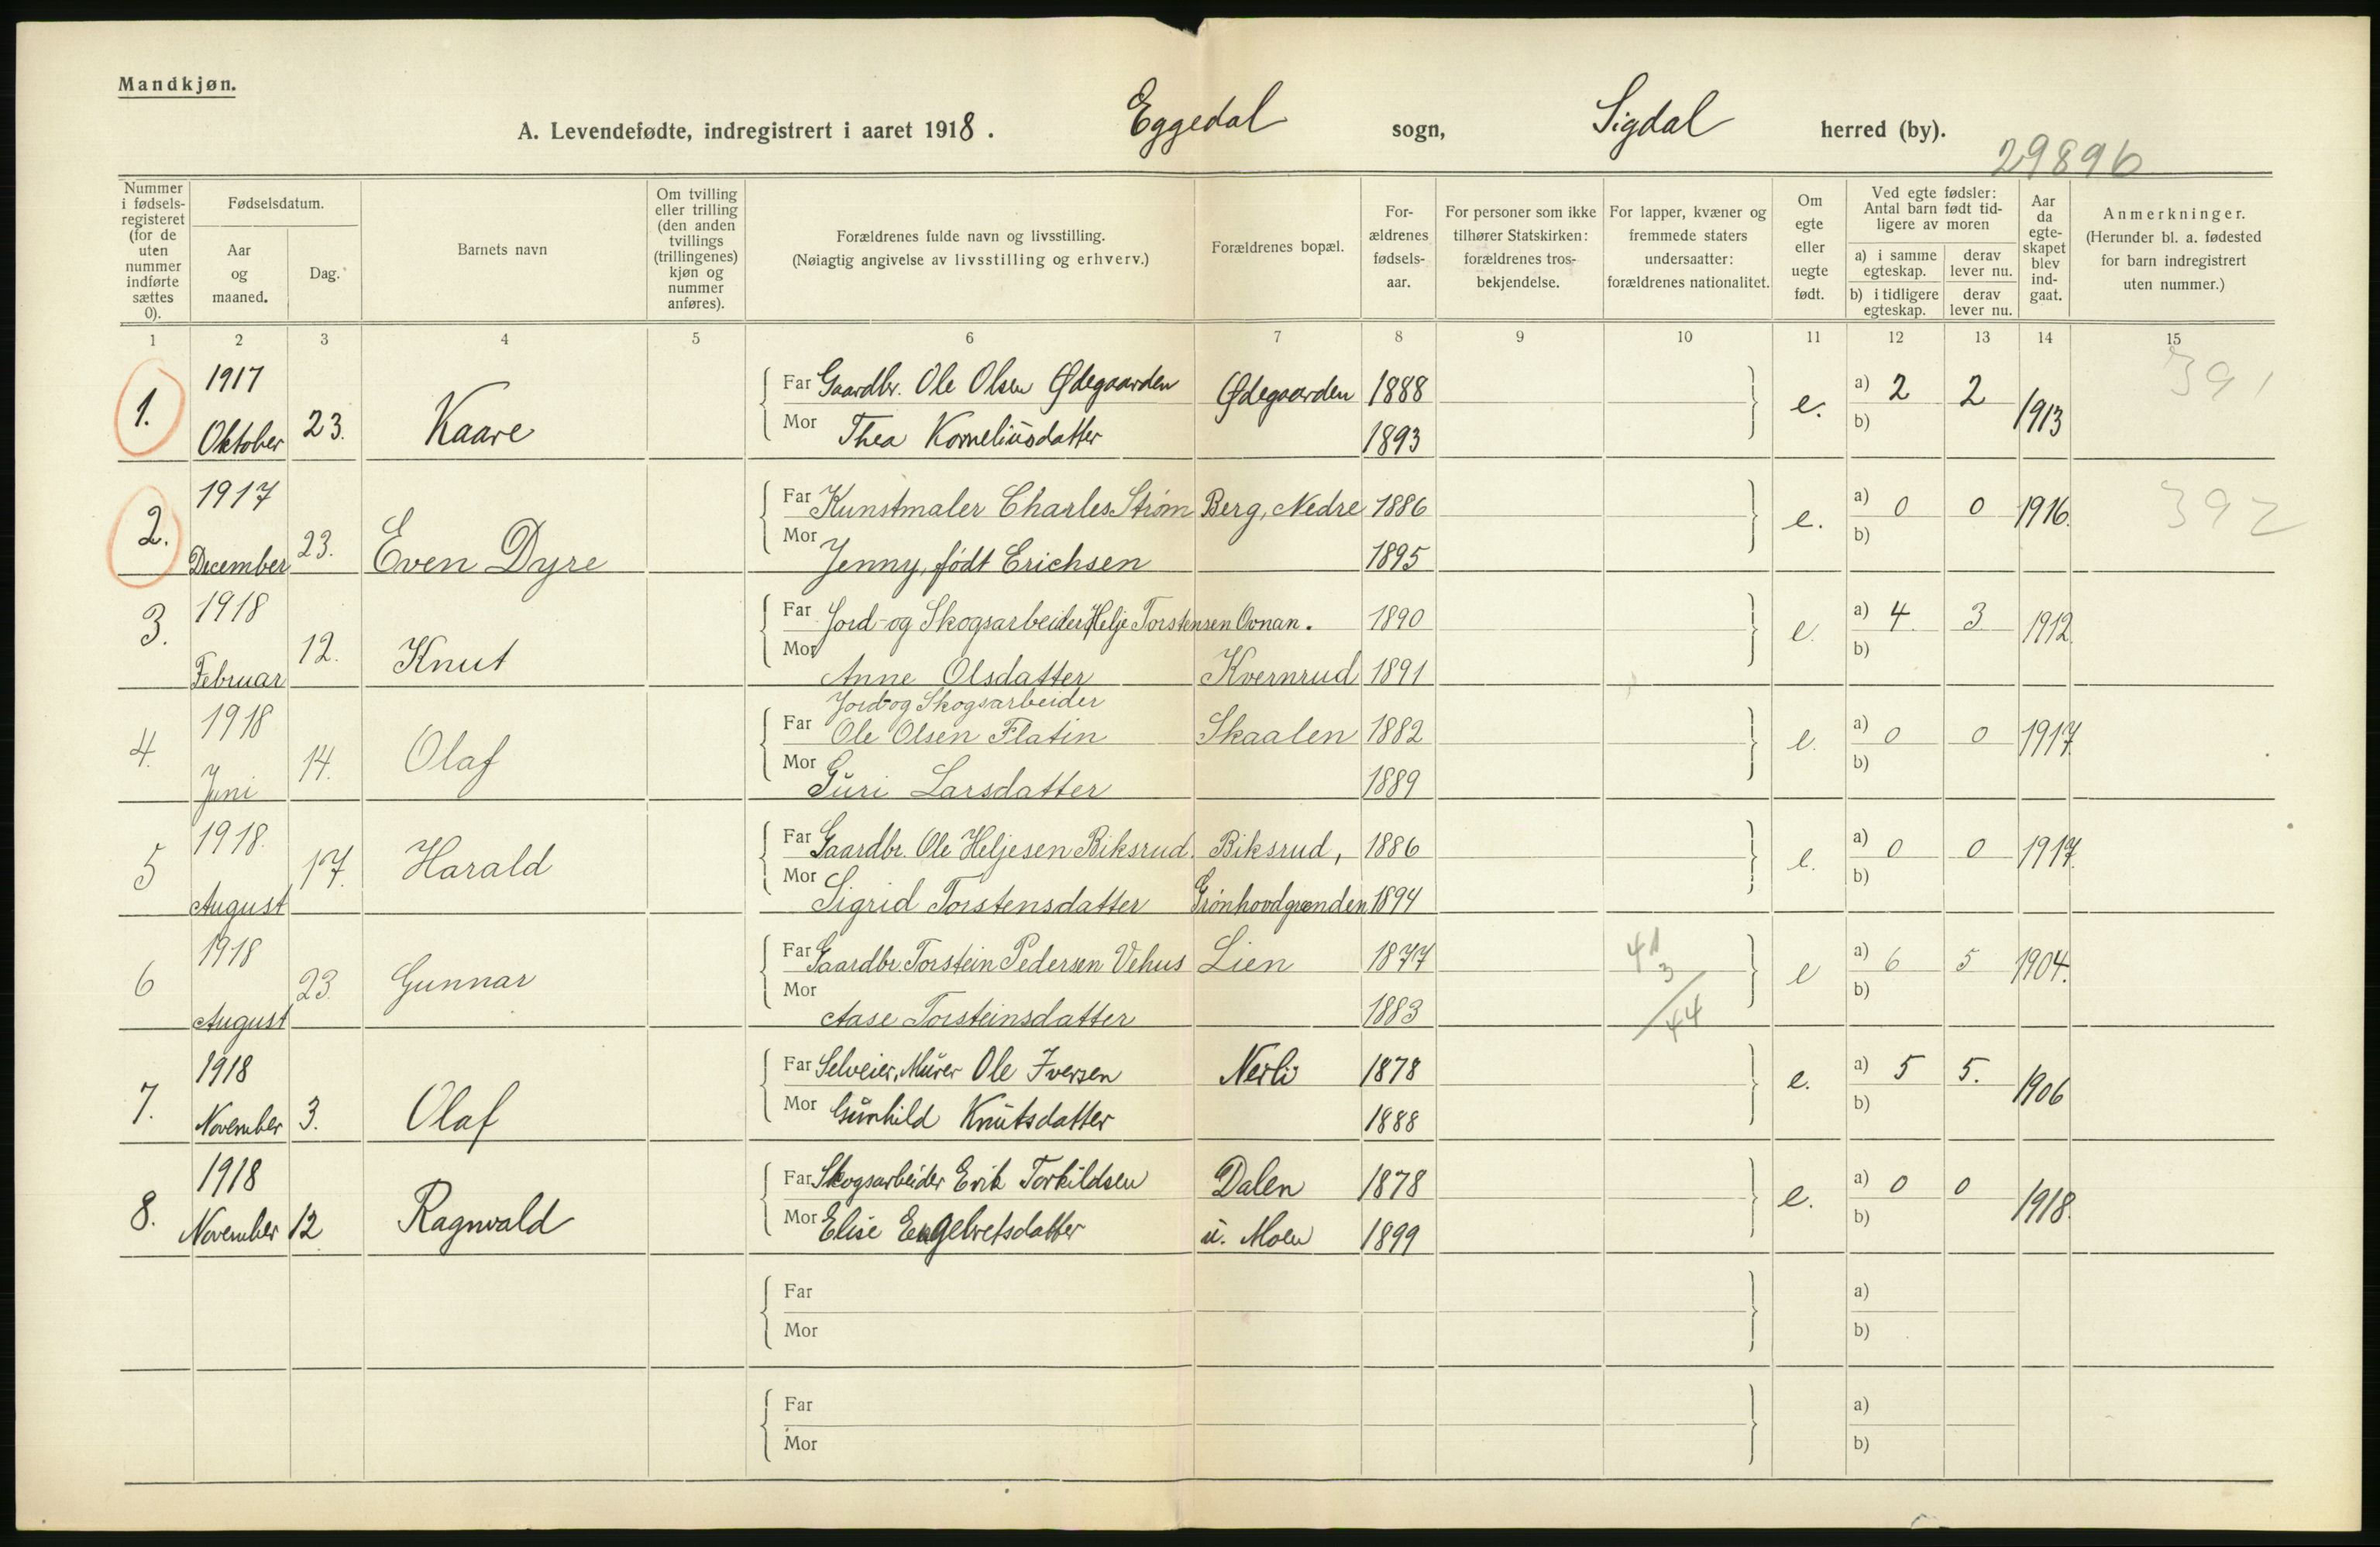 Mandkjøn.
A. Levendefødte, indregistrert i aaret 1918. Eggedal sogn, Sigdal herred (by).
29896
Nummer i fødsels-registeret (for de uten nummer indførte sættes 0).
Fødselsdatum.
Aar og maaned.
Dag.
Barnets navn
Om tvilling eller trilling (den anden tvillings (trillingenes) kjøn og nummer anføres).
Forældrenes fulde navn og livsstilling.
(Nøiagtig angivelse av livsstilling og erhverv.)
Forældrenes bopæl.
For-ældrenes fødsels-aar.
For personer som ikke tilhører Statskirken: forældrenes tros-bekjendelse.
For lapper, kvæner og fremmede staters undersaatter: forældrenes nationalitet.
Om egte eller uegte født.
Ved egte fødsler: Antal barn født tid-ligere av moren
a) i samme egteskap. derav lever nu.
b) i tidligere egteskap. derav lever nu.
Aar da egte-skapet blev ind-gaat.
Anmerkninger.
(Herunder bl. a. fødested for barn indregistrert uten nummer.)
1 2 3 4 5 6 7 8 9 10 11 12 13 14 15
1. 1917 Oktober 23. Kaare
Far Gaardbr. Ole Olsen Ødegaarden Ødegaarden 1888 e. a) 2 2 1913 391
Mor Thea Korneliusdatter 1893 b)
2. 1917 December 23. Even Dyre
Far Kunstmaler Charles Strøm Berg, Nedre 1886 e. a) 0 0 1916. 392
Mor Jenny, født Erichsen 1895 b)
3. 1918 Februar 12. Knut
Far Jord- og Skogsarbeider Helje Torstensen Ovnan. 1890 e. a) 4 3 1912
Mor Anne Olsdatter Kvernrud 1891 b)
4. 1918 Juni 14. Olaf
Jord- og Skogsarbeider
Far Ole Olsen Flatin Skaalen 1882 e. a) 0 0 1917
Mor Guri Larsdatter 1889 b)
5 1918. August 17. Harald
Far Gaardbr. Ole Heljesen Biksrud. Biksrud, 1886 e. a) 0 0 1917.
Mor Sigrid Torstensdatter Grønhovdgrænden 1894 b)
6 1918 August 23. Gunnar
Far Gaardbr. Torstein Pedersen Vehus Lien 1877 e a) 6 5 1904.
Mor Aase Torsteinsdatter 1883 b)
41
3
44
7. 1918 November 3. Olaf
Far Selveier, Murer Ole Iversen Nerli 1878 e. a) 5 5. 1906
Mor Gunhild Knutsdatter 1888 b)
8. 1918 November 12 Ragnvald
Far Skogsarbeider Erik Torkildsen Dalen 1878 e. a) 0 0 1918.
Mor Elise Engelvetsdatter u. Moen 1899 b)
Far a)
Mor b)
Far a)
Mor b)